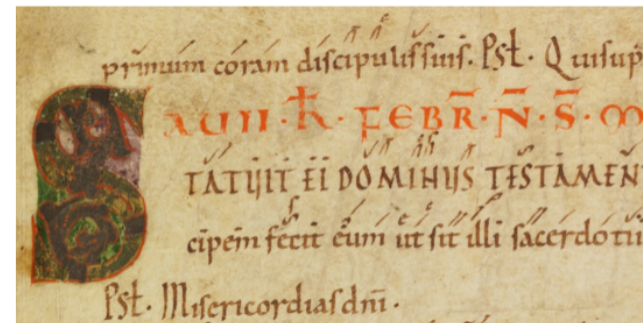 primum coram discipulissuis. Pst. Quisup
XVII . K . FEBR . N . S . M
STATUIT EI DOMINUS TESTAMEN
cipem fecit eum ut sit illi sacerdotii
Pst. Misericordias dni .